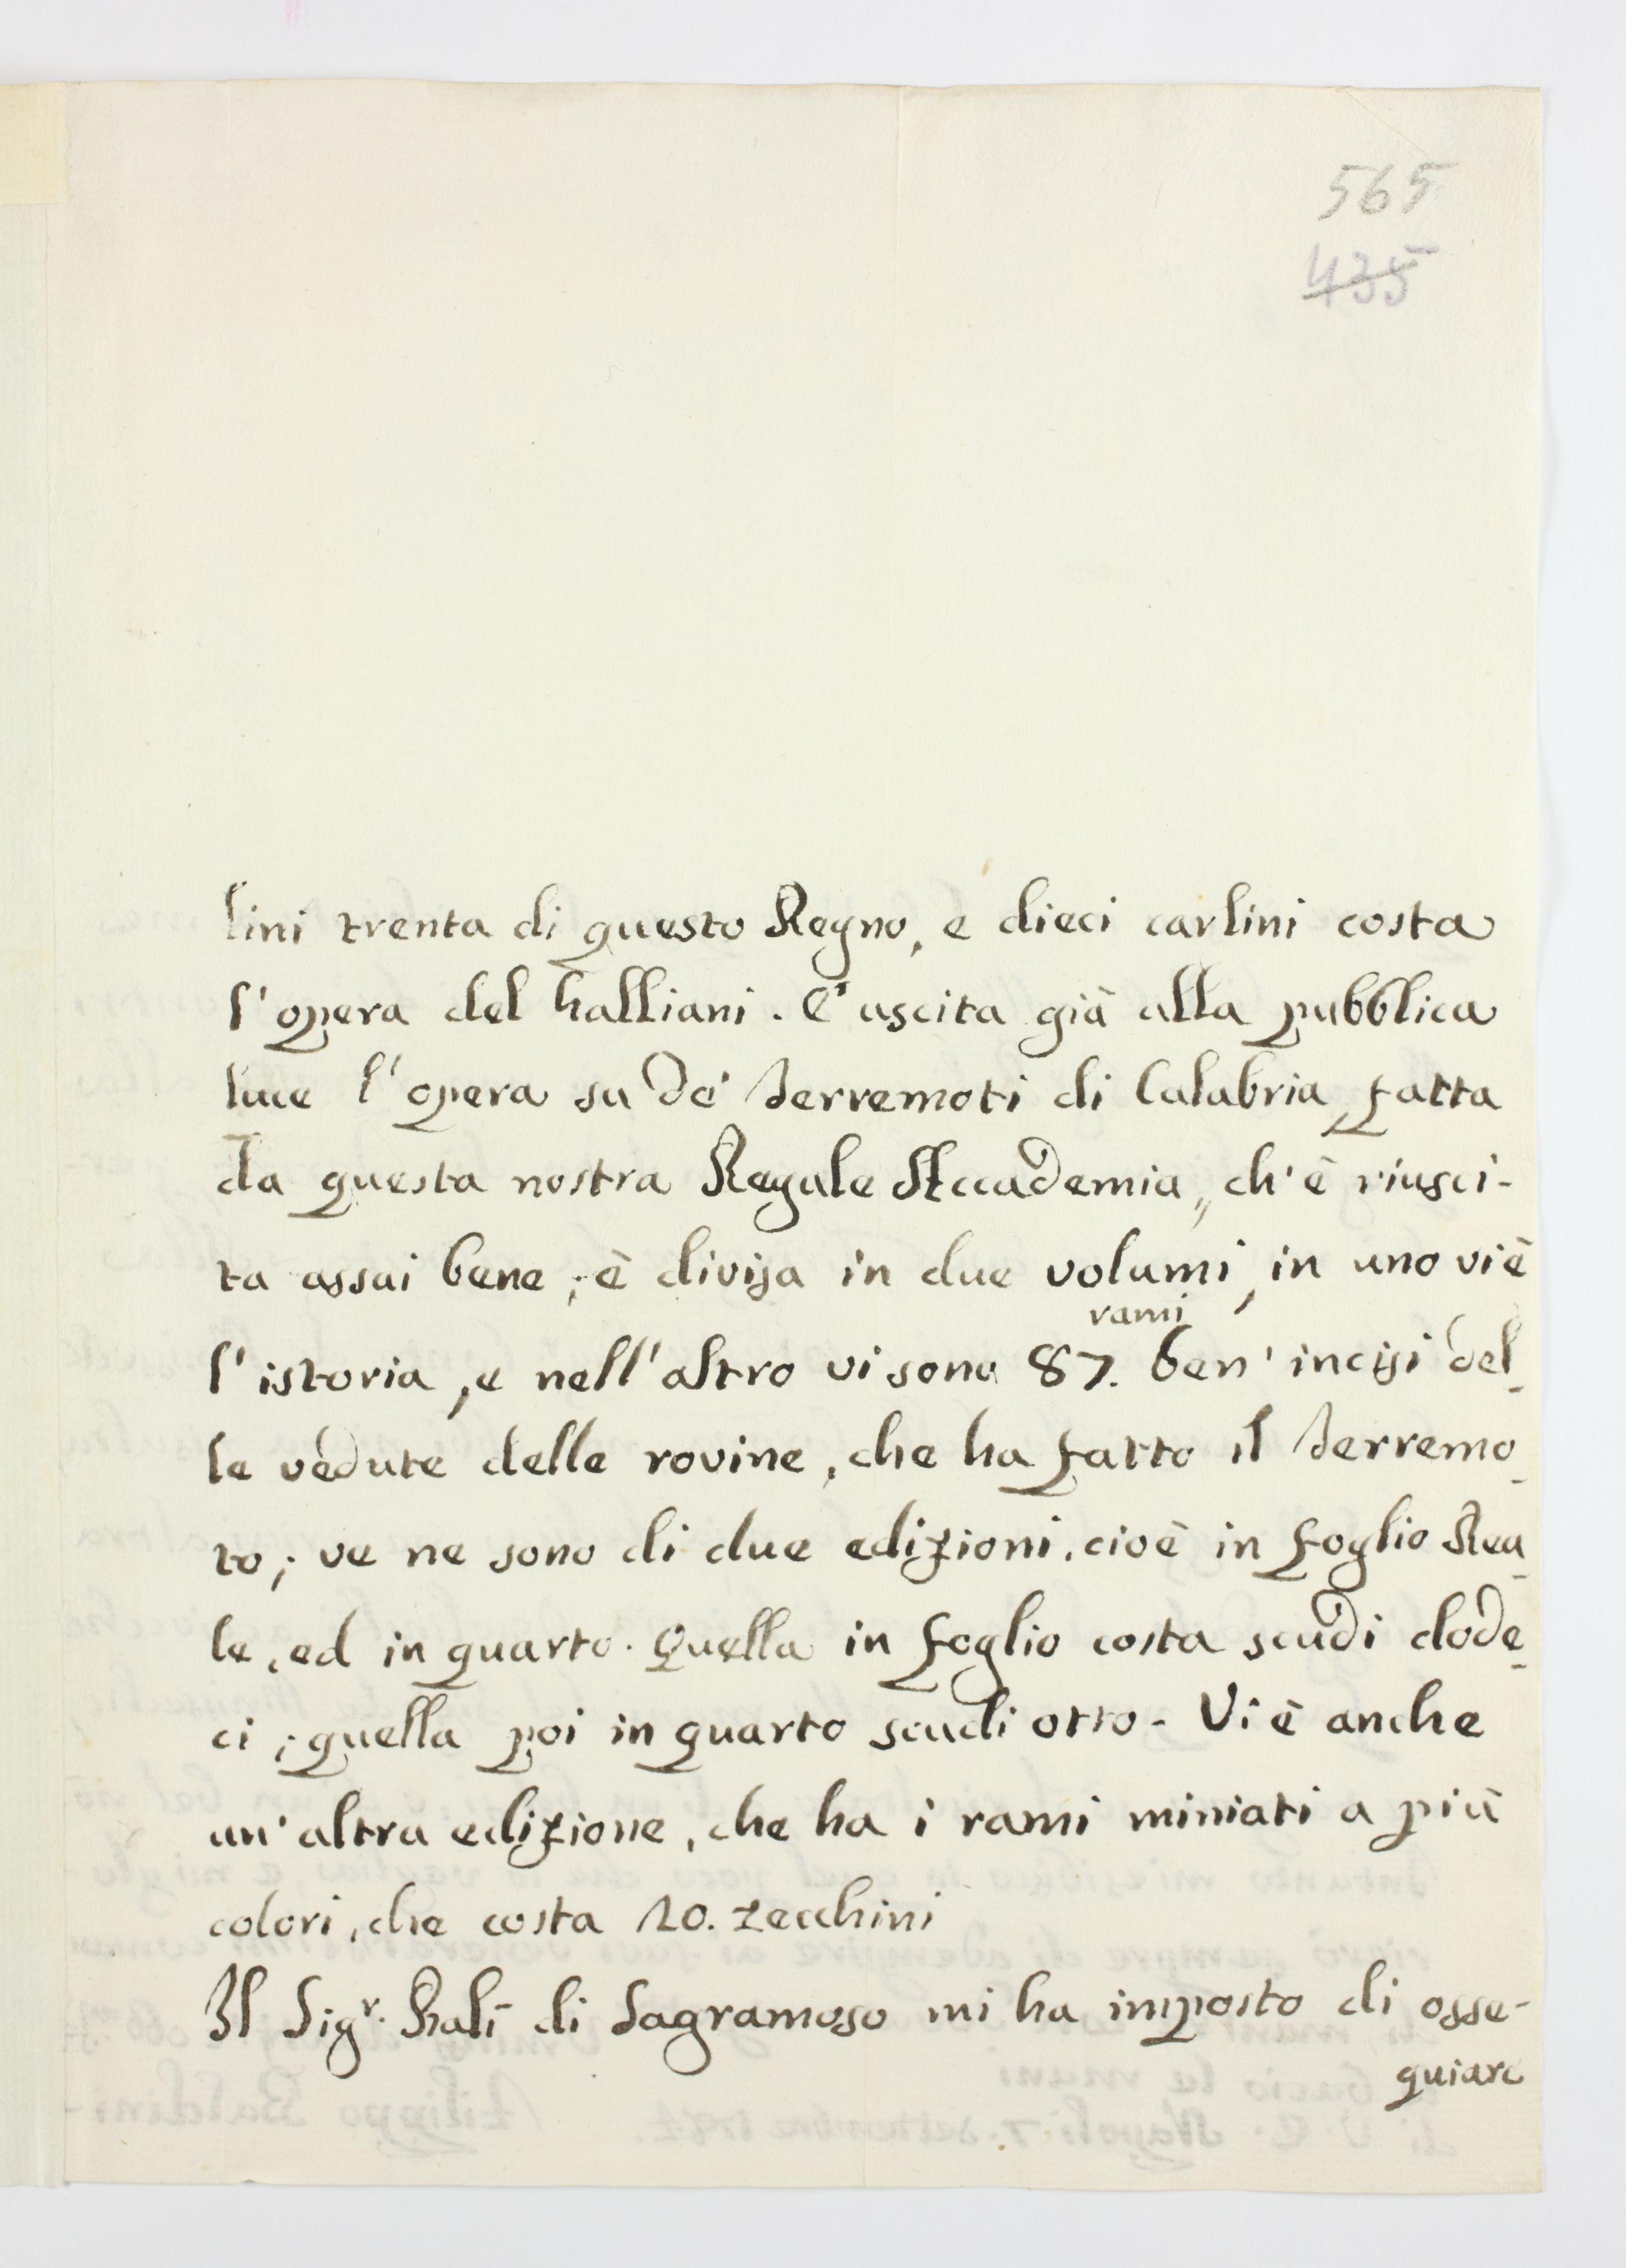 565
435
lini trenta di questo Regno, e dieci carlini costa
l'opera del Galliani. E' uscita già alla pubblica
luce l'opera su de' Terremoti di Calabria fatta
da questa nostra Regale Accademia, ch'è riusci-
ta assai bene; è divisa in due volumi, in uno vi è
l'istoria, e nell'altro vi sono 87. rami ben' incisi del-
le vedute delle rovine, che ha fatto il Terremo-
to; ve ne sono di due edizioni, cioè in foglio Rea-
le, ed in quarto. Quella in foglio costa scudi dode-
ci; quella poi in quarto scudi otto. Vi è anche
un'altra edizione, che ha i rami miniati a più
colori, che costa 20. zecchini
Il Sigr. Balì di Sagramoso mi ha imposto di osse-
quiare